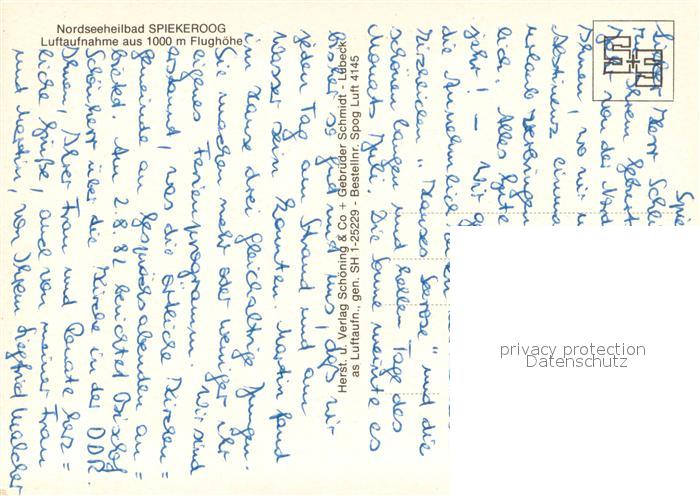 Nordseeheilbad SPIEKEROOG
Luftaufnahme aus 1000 m Flughöhe
Herst. u. Verlag Schöning & Co + Gebrüder Schmidt - Lübeck
as Luftaufn., gen. SH 1-25229 - Bestellnr. Spog Luft 4145
Spie
Herr Schl
Ihrem Geburt
von der Nord
Ihnen, wo wir
Abstinenz einma
Urlaub verbringen
lich. Alles Gute
Jahr! - Wir g
die Annehmlich
"Hauses Seerose" und die
schönen langen und hellen Tage des
Monats Juli. Die Sonne meinte es
bisher so gut mit uns, daß wir
jeden Tag am Strand und am
Wasser sein konnten. Martin fand
im Hause drei gleichaltrige Jungen.
Sie machen mehr oder weniger ihr
eigenes Ferienprogramm. Wir sind
erstaunt, was die örtliche Kirchen=
gemeinde an Gesprächsabenden an=
bietet. Am 2.8.82 berichtet Bischof
Schönherr über die Kirche in der DDR.
Ihnen, Ihrer Frau und Renate herz=
liche Grüße, auch von meiner Frau
und Martin, von Ihrem Siegfried
privacy protection
Datenschutz